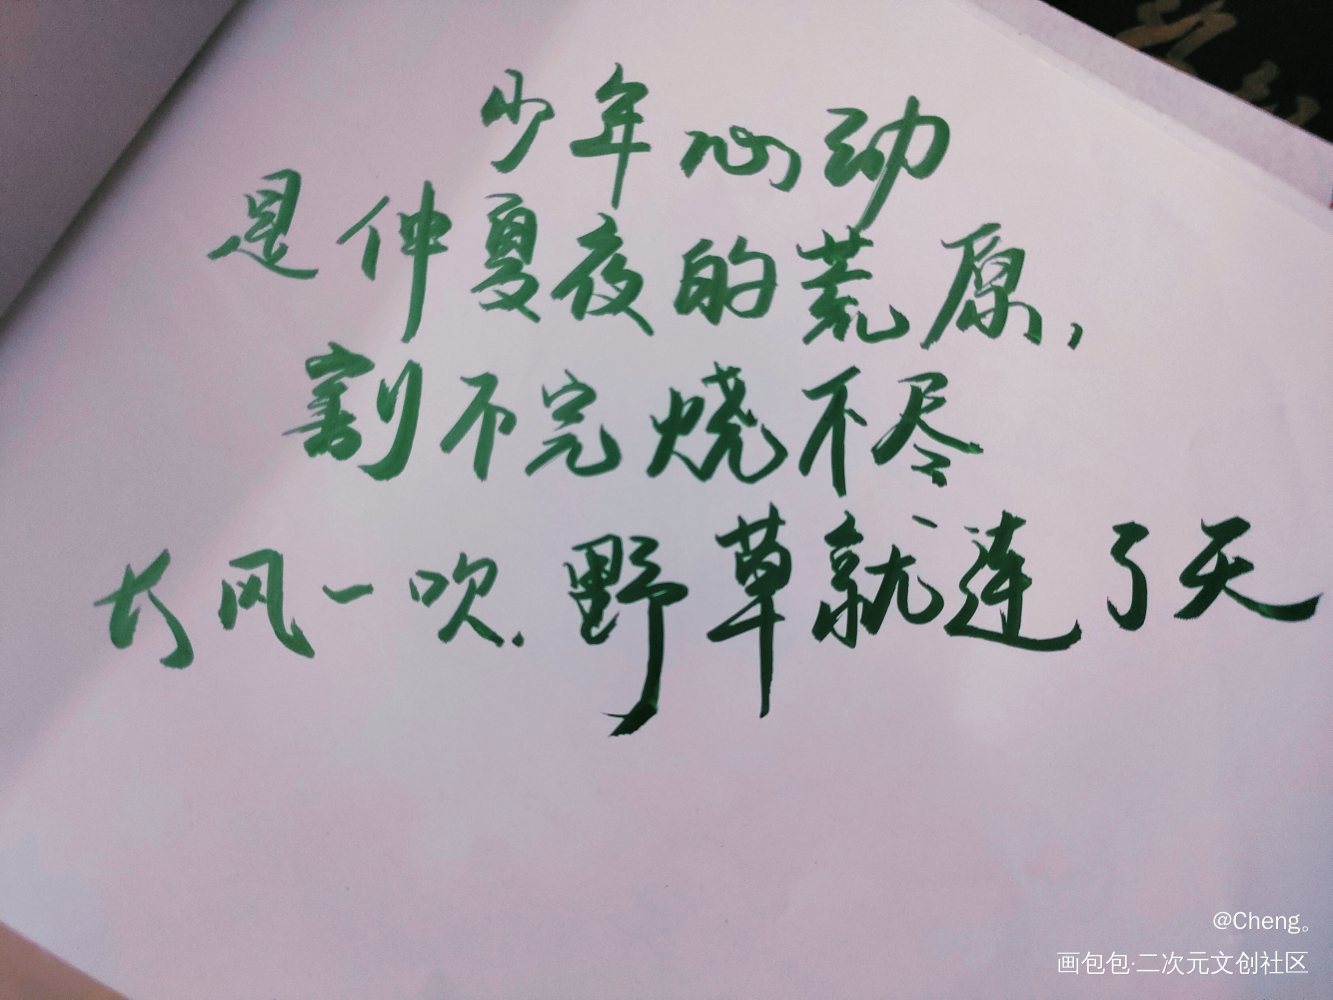 少年心动
是仲夏夜的荒原，
割不完烧不尽
长风一吹.野草就连了天
@Cheng。
画包包·二次元文创社区